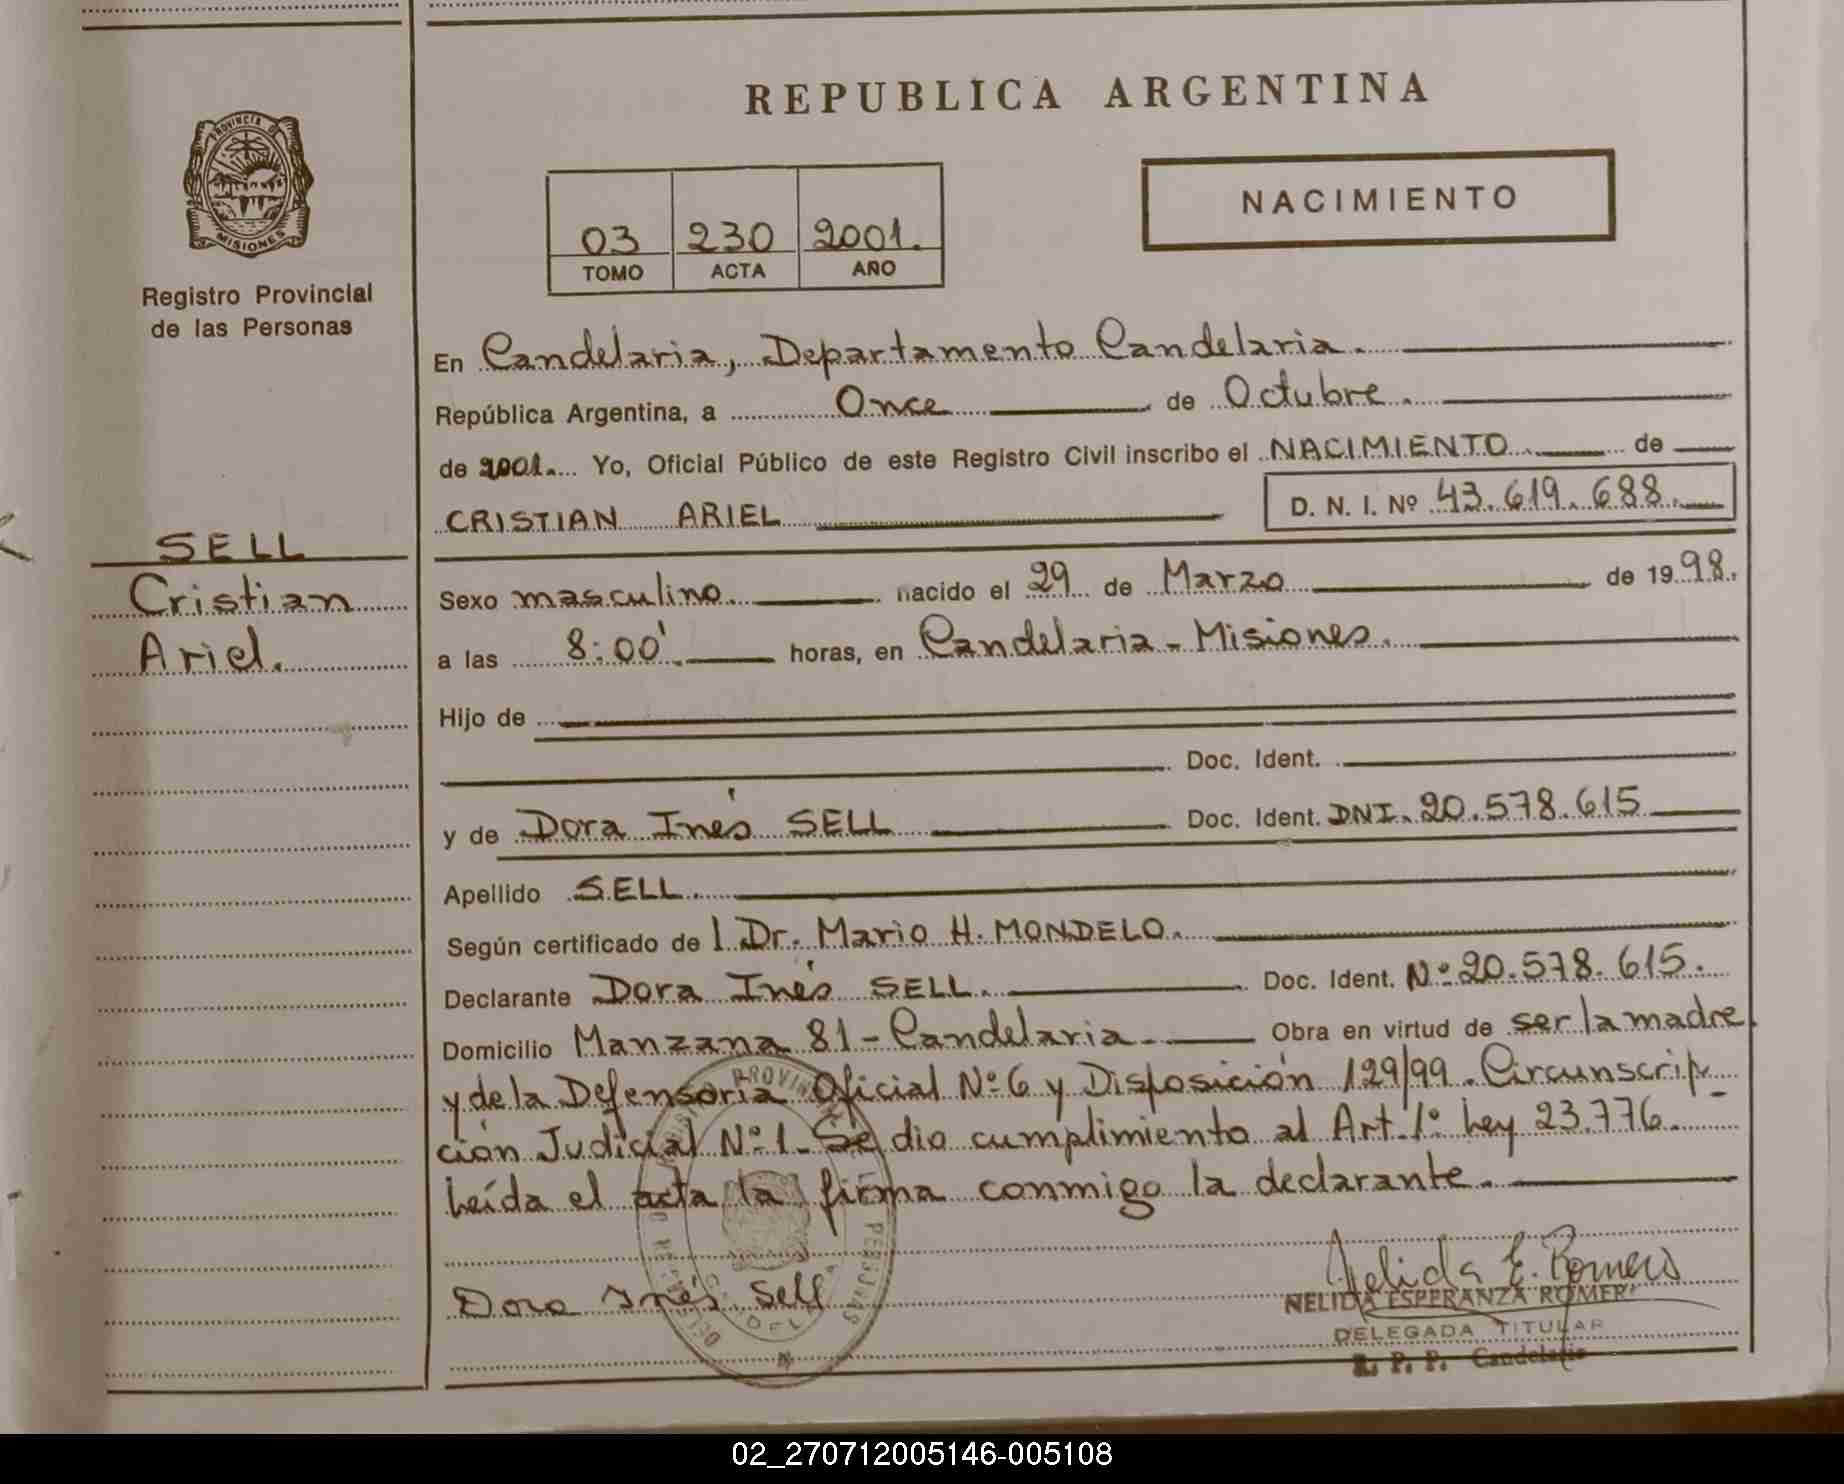 REPUBLICA ARGENTINA
PROVINCIA DE
MISIONES
Registro Provincial
de las Personas
NACIMIENTO
03 230 2001.
TOMO ACTA AÑO
En Candelaria, Departamento Candelaria.
República Argentina, a Once de Octubre.
de 2001. Yo, Oficial Público de este Registro Civil inscribo el NACIMIENTO de
CRISTIAN ARIEL D. N. I. Nº 43.619.688.
SELL
Cristian
Ariel.
Sexo masculino. nacido el 29 de Marzo de 1998.
a las 8:00'. horas, en Candelaria - Misiones.
Hijo de
Doc. Ident.
y de Dora Inés SELL Doc. Ident. DNI. 20.578.615
Apellido SELL.
Según certificado de l Dr. Mario H. MONDELO.
Declarante Dora Inés SELL. Doc. Ident. Nº 20.578.615.
Domicilio Manzana 81 - Candelaria. Obra en virtud de ser la madre
y de la Defensoría Oficial Nº 6 y Disposición 129/99. Circunscrip_
ción Judicial Nº 1. Se dio cumplimiento al Art. 1º Ley 23.776.
Leída el acta la firma conmigo la declarante.
Dora Inés Sell
Nelida E. Romero
NELIDA ESPERANZA ROMERO
DELEGADA TITULAR
R. P. P. Candelaria
02_270712005146-005108